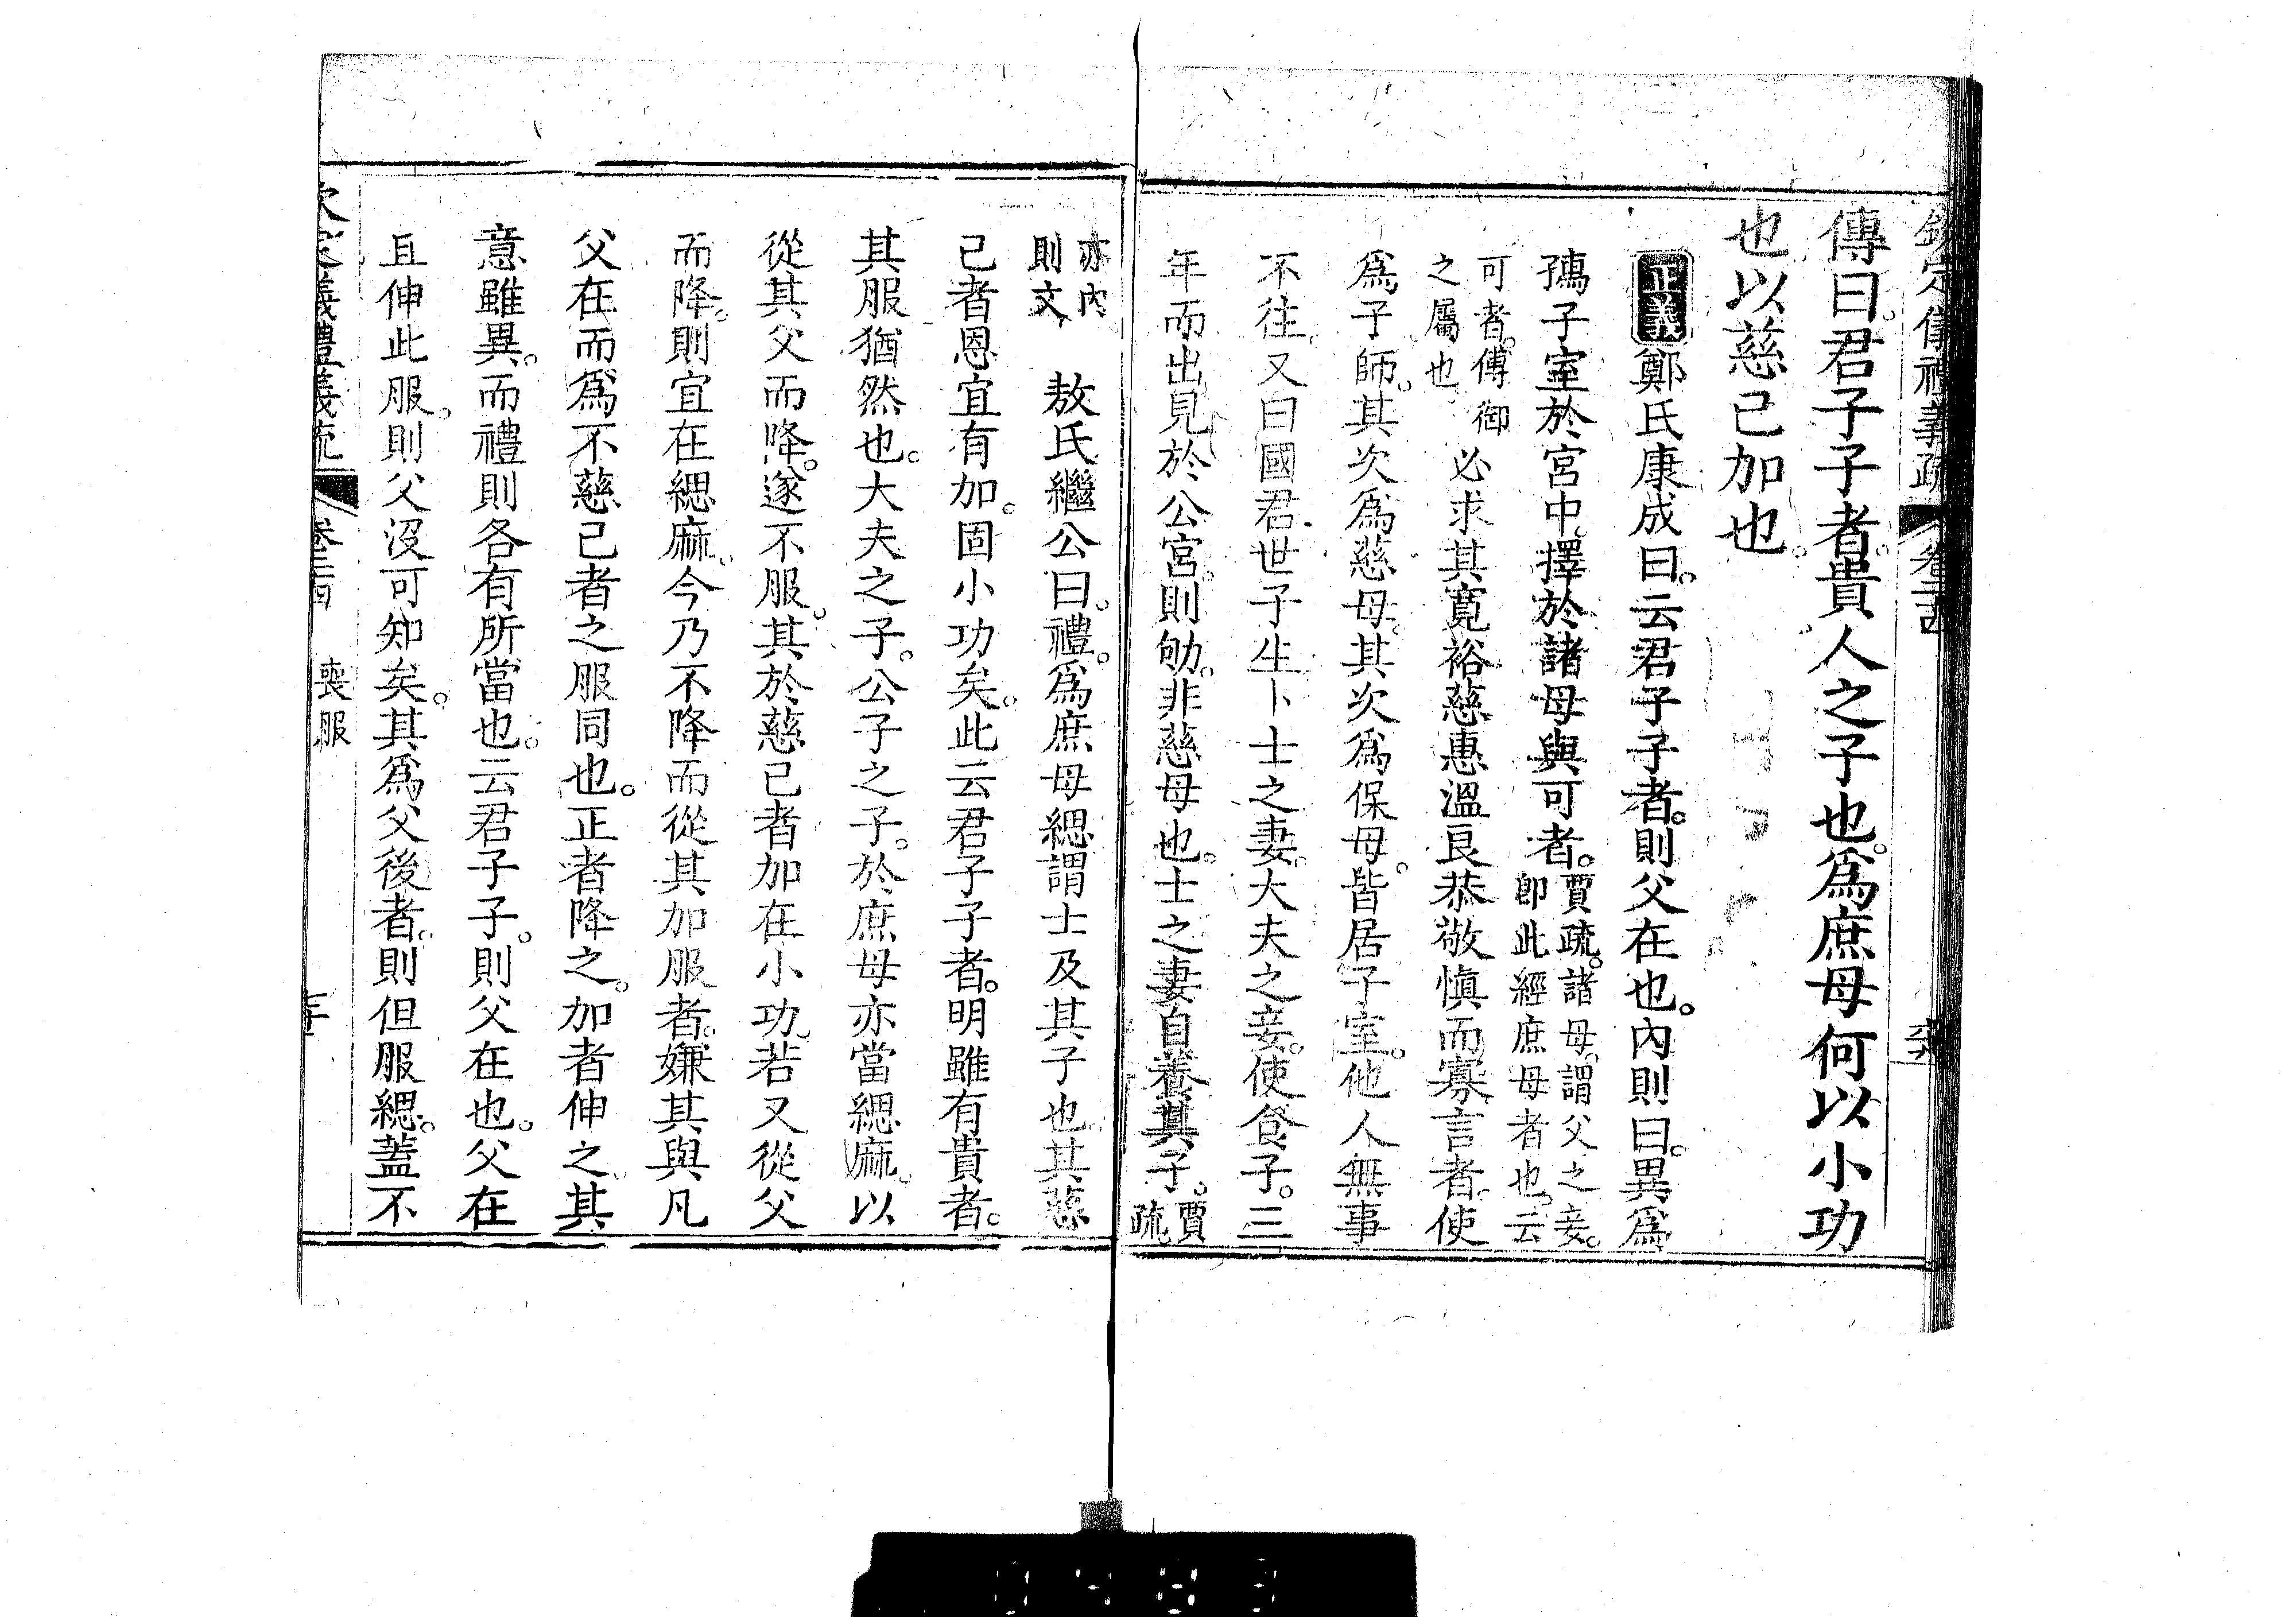 欽定儀禮義疏 卷二十四
傳曰。君子子者。貴人之子也。爲庶母何以小功
也以慈己加也。
正義鄭氏康成曰。云君子子者。則父在也。內則曰。異爲
孺子室於宮中。擇於諸母與可者。賈疏。諸母。謂父之妾。卽此經庶母者也。云
可者。傅御之屬也必求其寬裕慈惠溫良恭敬慎而寡言者。使
爲子師。其次爲慈母。其次爲保母。皆居子室。他人無事
不往。又曰國君世子生卜士之妻。大夫之妾。使食子。三
年而出見於公宮。則劬。非慈母也。士之妻自養其子。賈疏
亦內則文 敖氏繼公曰。禮。爲庶母緦謂士及其子也其慈
己者恩宜有加。固小功矣。此云君子子者。明雖有貴者。
其服猶然也。大夫之子。公子之子。於庶母亦當緦麻。以
從其父而降。遂不服。其於慈己者加在小功。若又從父
而降。則宜在緦麻。今乃不降而從其加服者。嫌其與凡
父在而爲不慈己者之服同也。正者降之。加者伸之。其
意雖異。而禮則各有所當也。云君子子。則父在也。父在
且伸此服。則父沒可知矣。其爲父後者。則但服緦。蓋不
欽定義禮義疏 卷二十四 喪服